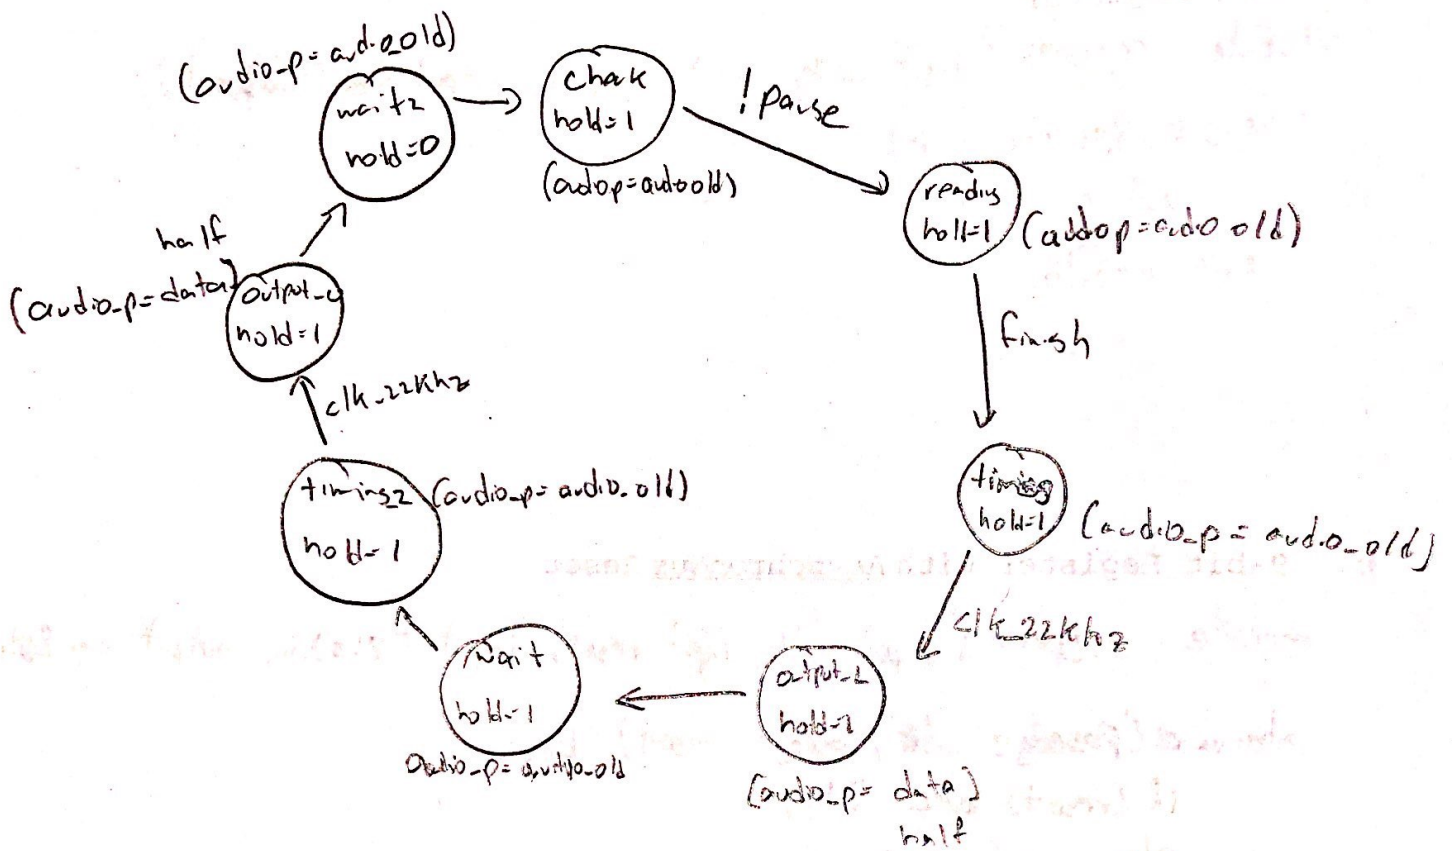 (audio_p=audio_old)
wait2
hold=0
chack
hold=1
(audop=audoold)
!pause
reading
hold=1
(audop=audo old)
finish
timing
hold=1
(audio_p = audio_old)
clk_22khz
output_1
hold=1
(audio_p= data)
half
wait
hold=1
audio_p=audio_old
timing_2
hold=1
(audio_p=audio_old)
clk_22khz
output_u
hold=1
half
(audio_p=data)
8-bit Register with Asynchronous Reset